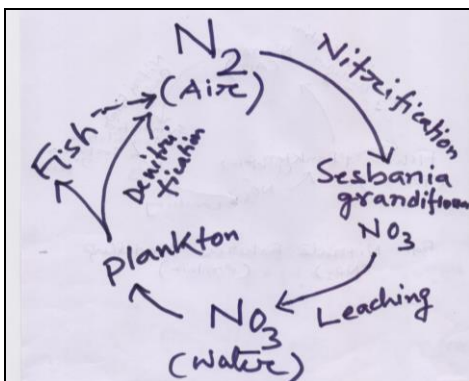 N2
(Air)
Nitrification
Sesbania
grandiflora
NO3
Leaching
NO3
(water)
plankton
Fish
Denitri
fication